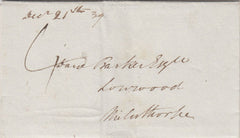 Decr 21st 39
Barker Esqre
Lowwood
Milnthorpe